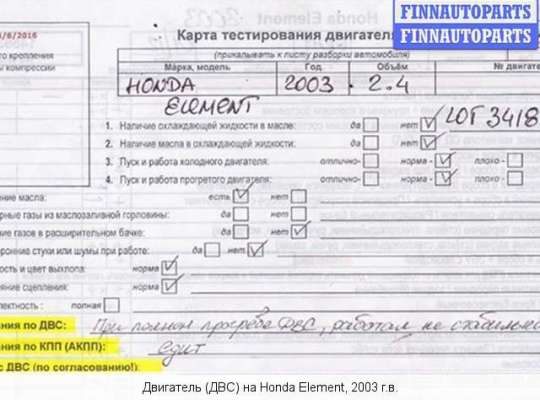 FINNAUTOPARTS
FINNAUTOPARTS
/8/2016
Карта тестирования двигателя
(прикалывать к листу разборки автомобиля)
о крепления
ы компрессии
Марка, модель Год Объём № двигате
HONDA 2003 2.4
ELEMENT
1. Наличие охлаждающей жидкости в масле: да нет LOT 3418
2. Наличие масла в охлаждающей жидкости: да нет
3. Пуск и работа холодного двигателя: отлично- норма - плохо -
4. Пуск и работа прогретого двигателя: отлично- норма - плохо -
ение масла: есть нет
рные газы из маслозаливной горловины: да нет
ие газов в расширительном бачке: да нет
оронние стуки или шумы при работе: да нет
ость и цвет выхлопа: норма
яние сцепления: норма
лектность : полная
ания по ДВС: При полном прогреве ДВС, работал не стабильно
ания по КПП (АКПП): едит
с ДВС (по согласованию!):
Двигатель (ДВС) на Honda Element, 2003 г.в.